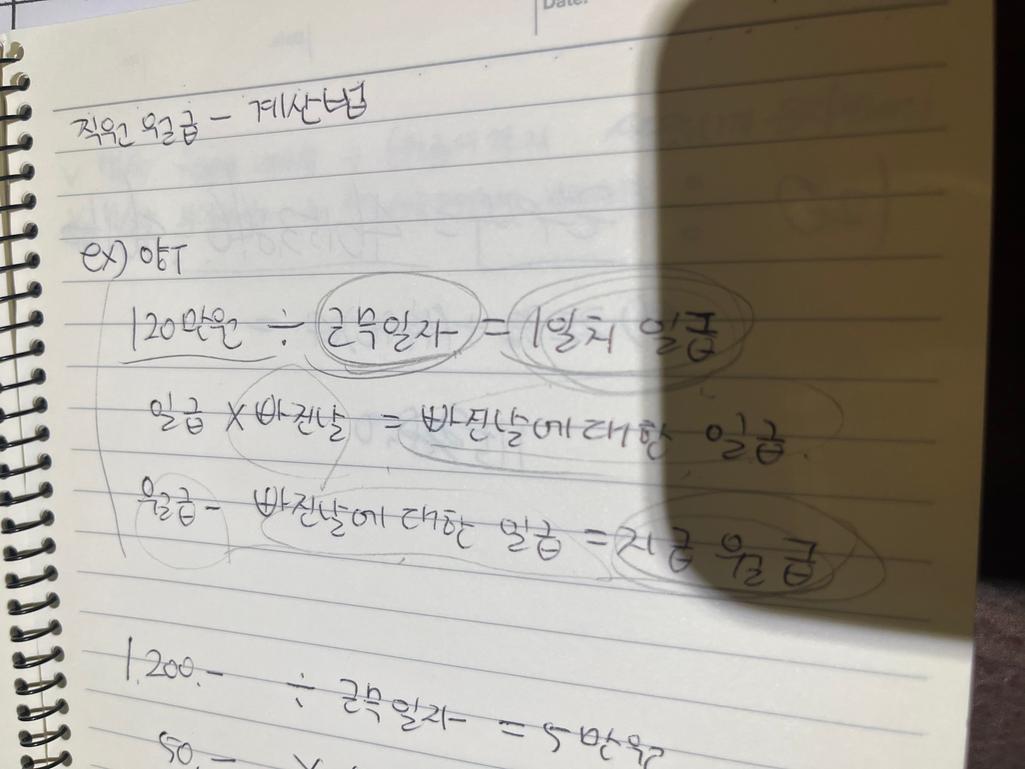 Date.
직원 월급 - 계산법
ex) 양T
120만원 ÷ 근무일자 = 1일치 일급
일급 × 빠진날 = 빠진날에 대한 일급
월급 - 빠진날에 대한 일급 = 지급 월급
1.200.- ÷ 근무일자 = 5만원
50.- ×